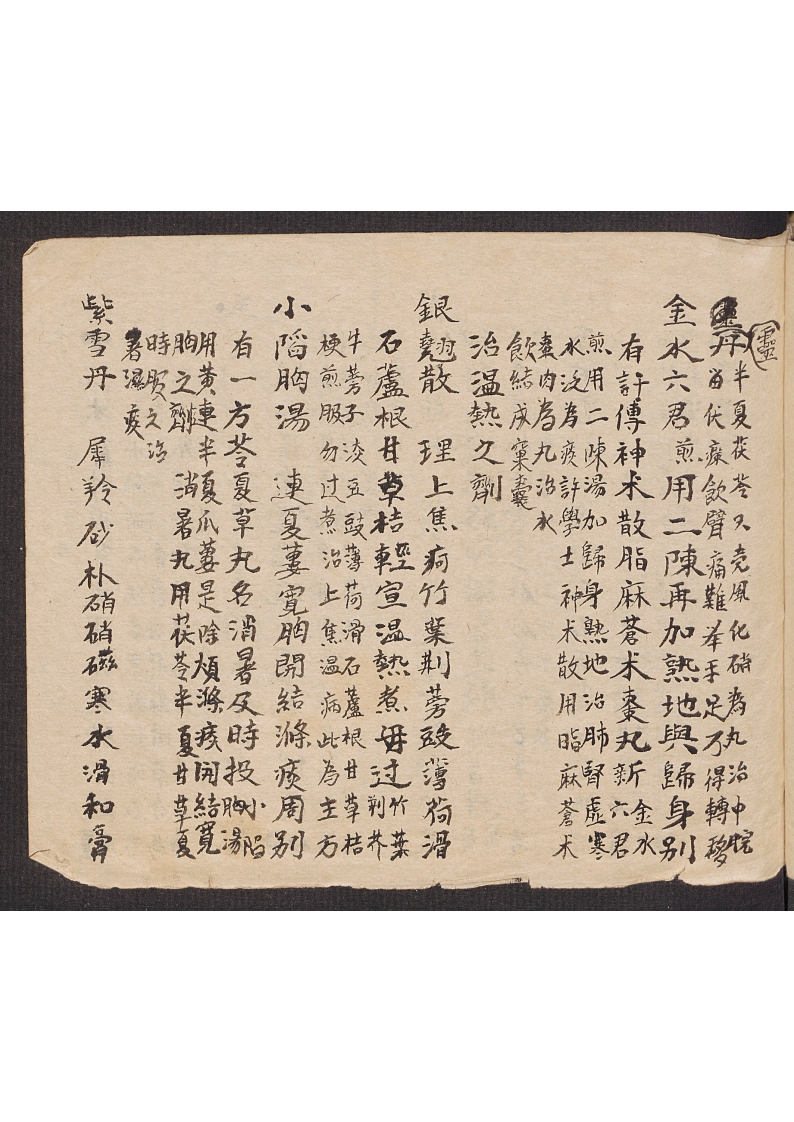 靈
丹
半夏茯苓只壳風化硝為丸治中脘
留伏痰飲臂痛難举手足不得轉移
金水六君煎用二陳再加熟地與歸身別
有許傳神术散脂麻蒼术棗丸新
金水
六君
煎用二陳湯加歸身熟地治肺腎虛寒
水泛為痰許學士神术散用脂麻蒼术
棗肉為丸治水
飲結成窠囊
治温熱之劑
銀翹散 理上焦荷竹葉荆蒡豉薄荷滑
石蘆根甘草桔輕宣温熱煮毋过
竹葉
荆芥
牛蒡子淡豆豉薄荷滑石蘆根甘草桔
梗煎服勿过煮治上焦温病此為主方
小陷胸湯 連夏蔞寬胸開結滌痰周别
有一方苓夏草丸名消暑及時投
小陷
胸湯
用黄連半夏瓜蔞是除煩滌痰開結寬
胸之劑 消暑丸用茯苓半夏甘草夏
時服之治
暑濕痰
紫雪丹 犀羚砂朴硝硝磁寒水滑和膏